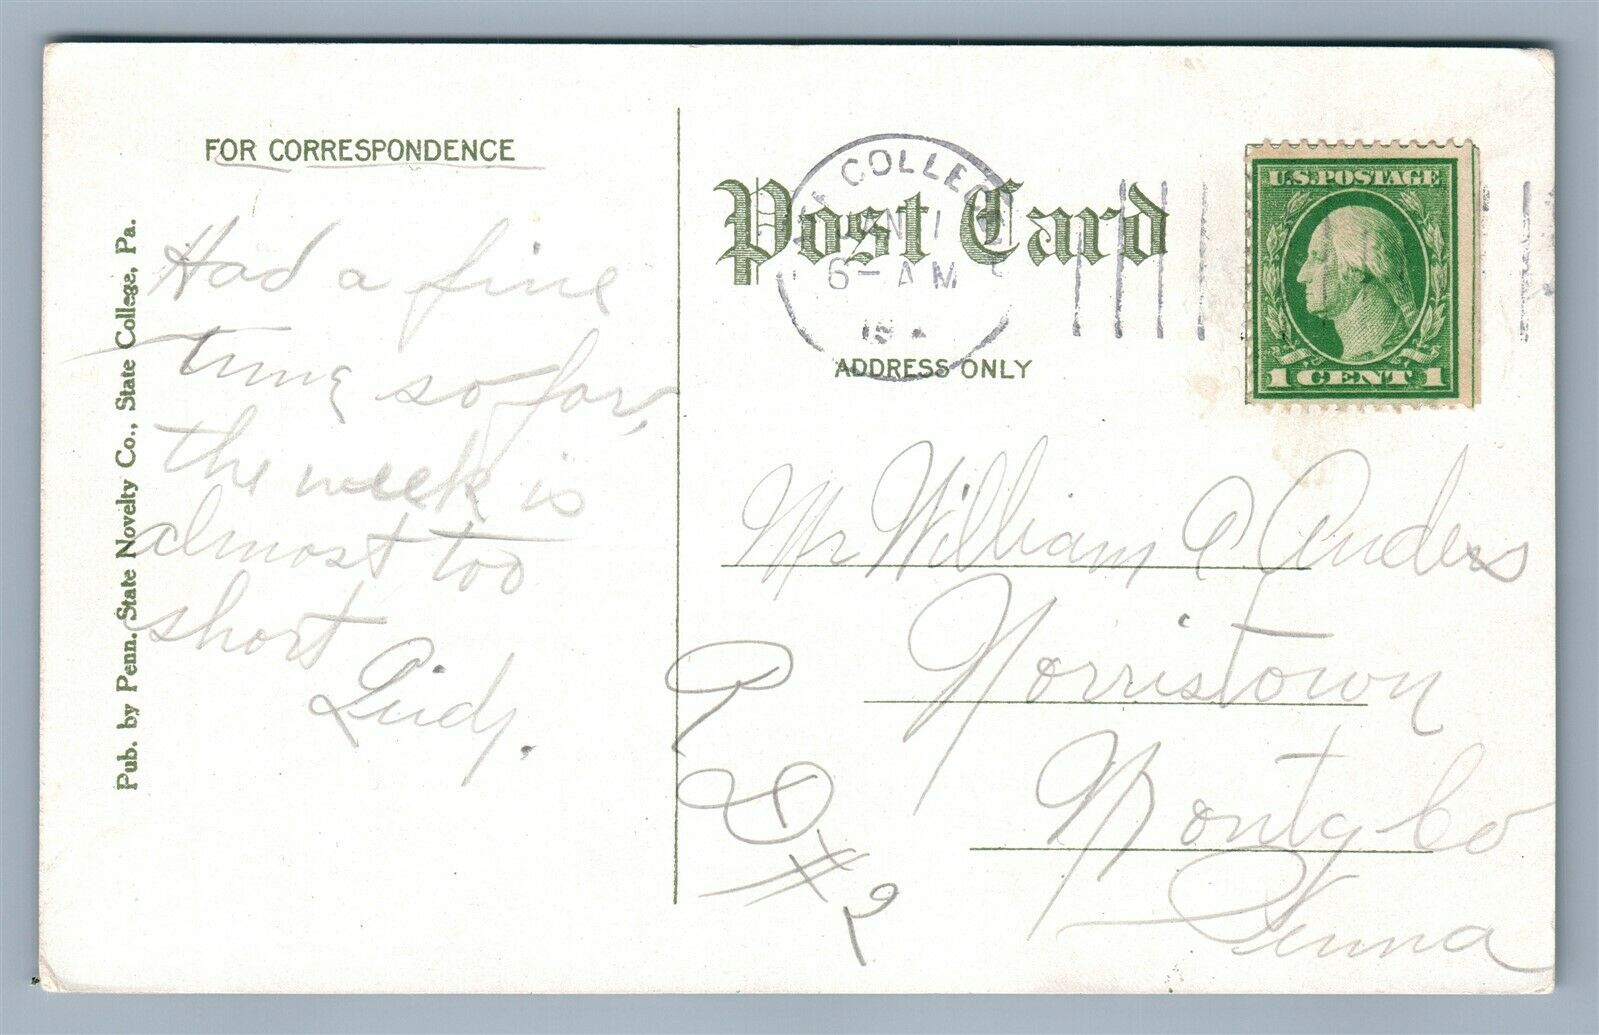 FOR CORRESPONDENCE
Had a fine
time so far,
the week is
almost too
short
Pub. by Penn. State Novelty Co., State College, Pa.
Post Card
COLLEGE
6-AM
ADDRESS ONLY
U.S. POSTAGE
1 CENT 1
Mr William Anders
Norristown
Montg Co
Penna
R D #2